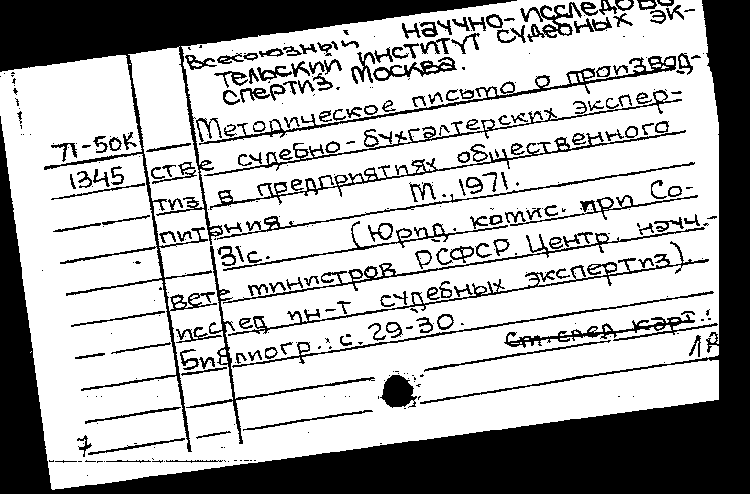 Всесоюзный научно-исследова-
тельский институт судебных эк-
спертиз. Москва.
Методическое письмо о производ-
71-50К
1345 стве судебно-бухгалтерских экспер-
тиз в предприятиях общественного
питания. М., 1971.
31с. (Юрид. комис. при Со-
вете министров РСФСР. Центр. научн.-
исслед ин-т судебных экспертиз).
Библиогр.: с. 29-30.
См. след. карт.:
7